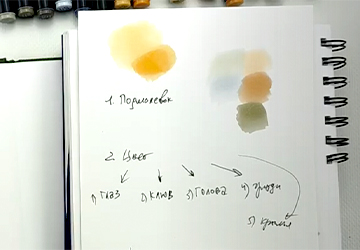 1. Подмалевок
2. Цвет
1) Глаз 2) Клюв 3) Голова 4) Грудь
5) Крылья